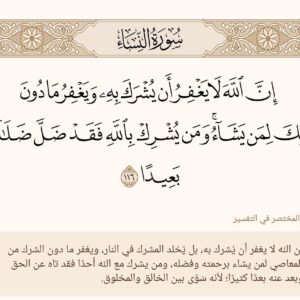 سُورَةُ النِّسَاءِ
إِنَّ ٱللَّهَ لَا يَغْفِرُ أَن يُشْرَكَ بِهِۦ وَيَغْفِرُ مَا دُونَ
لِكَ لِمَن يَشَآءُ ۚ وَمَن يُشْرِكْ بِٱللَّهِ فَقَدْ ضَلَّ ضَلَـٰلًۢا
بَعِيدًا ١١٦
المختصر في التفسير
الله لا يغفر أن يُشرك به، بل يُخلد المشرك في النار، ويغفر ما دون الشرك من
المعاصي لمن يشاء برحمته وفضله، ومن يشرك مع الله أحدًا فقد تاه عن الحق
وبعد عنه بعدًا كثيرًا؛ لأنه سَوَّى بين الخالق والمخلوق.